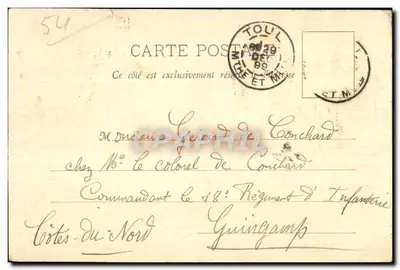 54
TOUL
29
DEC
99
MTHE ET M
CARTE POST
Ce côté est exclusivement rése esse
ST M
Monsieur de Conchard
chez Mr le colonel de Conchard
Commandant le 48e Régiment d'Infanterie
Guingamp
Côtes-du-Nord